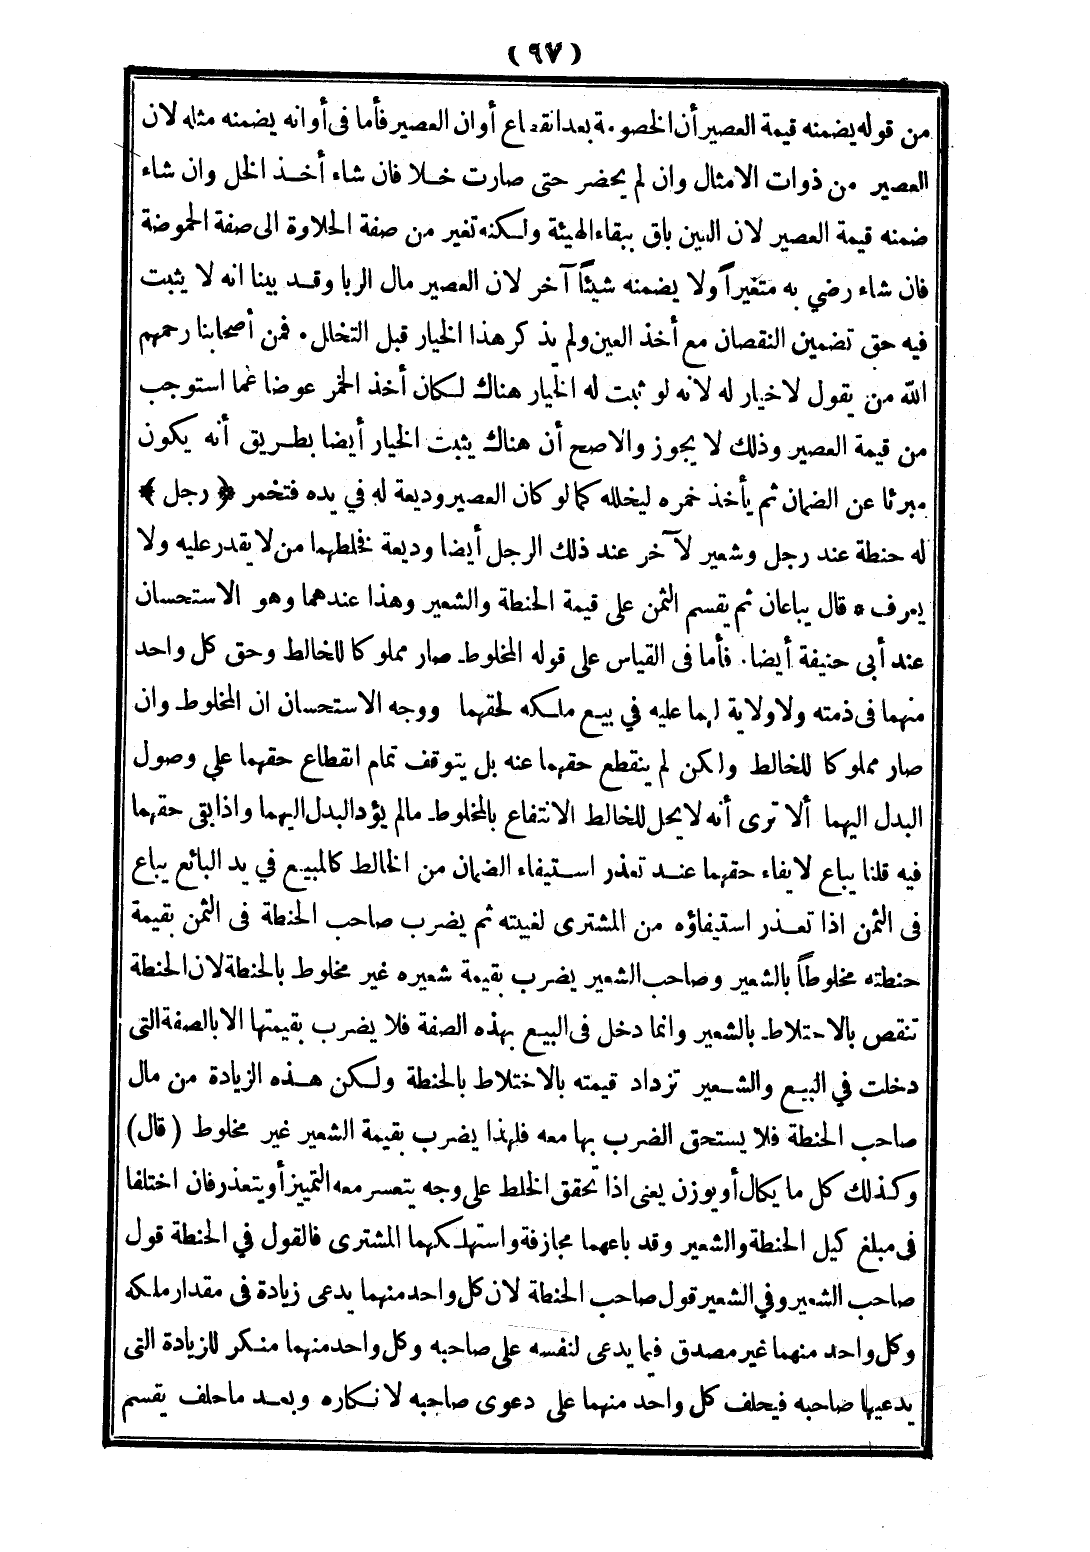 (٩٧)
من قوله يضمنه قيمة العصير أن الخصومة بعد انقطاع أوان العصير فأما فى أوانه يضمنه مثله لان
العصير من ذوات الامثال وان لم يحضر حتى صارت خلا فان شاء أخذ الخل وان شاء
ضمنه قيمة العصير لان العين باق ببقاء الهيئة ولكنه تغير من صفة الحلاوة الى صفة الحموضة
فان شاء رضي به متغيراً ولا يضمنه شيئاً آخر لان العصير مال الربا وقد بينا انه لا يثبت
فيه حق تضمين النقصان مع أخذ العين ولم يذكر هذا الخيار قبل التخلل . فمن أصحابنا رحمهم
الله من يقول لاخيار له لانه لو ثبت له الخيار هناك لكان أخذ الخمر عوضا عما استوجب
من قيمة العصير وذلك لا يجوز والاصح أن هناك يثبت الخيار أيضا بطريق أنه يكون
مبرئا عن الضمان ثم يأخذ خمره ليخلله كما لو كان العصير وديعة له في يده فتخمر ﴿ رجل ﴾
له حنطة عند رجل وشعير لآخر عند ذلك الرجل أيضا وديعة فخلطهما من لا يقدر عليه ولا
يعرف * قال يباعان ثم يقسم الثمن على قيمة الحنطة والشعير وهذا عندهما وهو الاستحسان
عند أبى حنيفة أيضا . فأما فى القياس على قوله المخلوط صار مملوكا للخالط وحق كل واحد
منهما فى ذمته ولا ولاية لهما عليه في بيع ملكه لحقهما ووجه الاستحسان ان المخلوط وان
صار مملوكا للخالط ولكن لم ينقطع حقهما عنه بل يتوقف تمام انقطاع حقهما على وصول
البدل اليهما ألا ترى أنه لا يحل للخالط الانتفاع بالمخلوط مالم يؤد البدل اليهما واذا بقى حقهما
فيه قلنا يباع لايفاء حقهما عند تعذر استيفاء الضمان من الخالط كالمبيع في يد البائع يباع
فى الثمن اذا تعذر استيفاؤه من المشترى لغيبته ثم يضرب صاحب الحنطة فى الثمن بقيمة
حنطته مخلوطاً بالشعير وصاحب الشعير يضرب بقيمة شعيره غير مخلوط بالحنطة لان الحنطة
تنقص بالاختلاط بالشعير وانما دخل فى البيع بهذه الصفة فلا يضرب بقيمتها الا بالصفة التى
دخلت في البيع والشعير تزداد قيمته بالاختلاط بالحنطة ولكن هذه الزيادة من مال
صاحب الحنطة فلا يستحق الضرب بها معه فلهذا يضرب بقيمة الشعير غير مخلوط (قال)
وكذلك كل ما يكال أو يوزن يعنى اذا تحقق الخلط على وجه يتعسر معه التمييز أو يتعذر فان اختلفا
فى مبلغ كيل الحنطة والشعير وقد باعهما مجازفة واستهلكهما المشترى فالقول في الحنطة قول
صاحب الشعير وفي الشعير قول صاحب الحنطة لان كل واحد منهما يدعى زيادة فى مقدار ملكه
وكل واحد منهما غير مصدق فيما يدعى لنفسه على صاحبه وكل واحد منهما منكر للزيادة التى
يدعيها صاحبه فيحلف كل واحد منهما على دعوى صاحبه لانكاره وبعد ما حلف يقسم